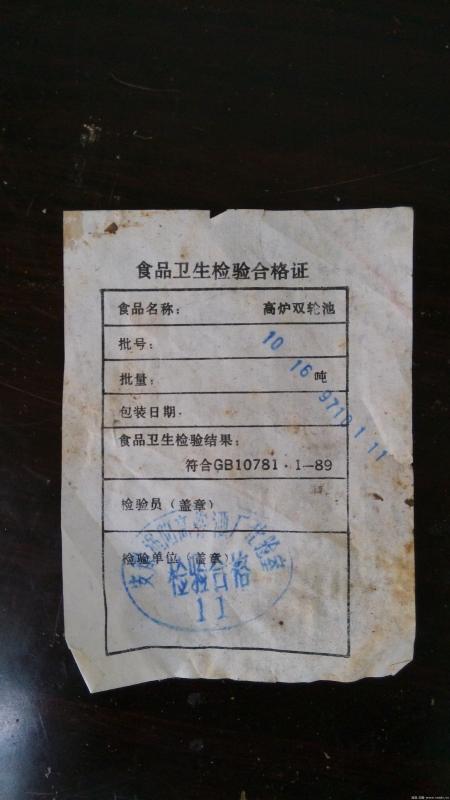 食品卫生检验合格证
食品名称： 高炉双轮池
批号：
批量： 吨
包装日期·
10 16 9710 1 11
食品卫生检验结果：
符合GB10781·1—89
检验员（盖章）
检验单位（盖章）
检验合格
11